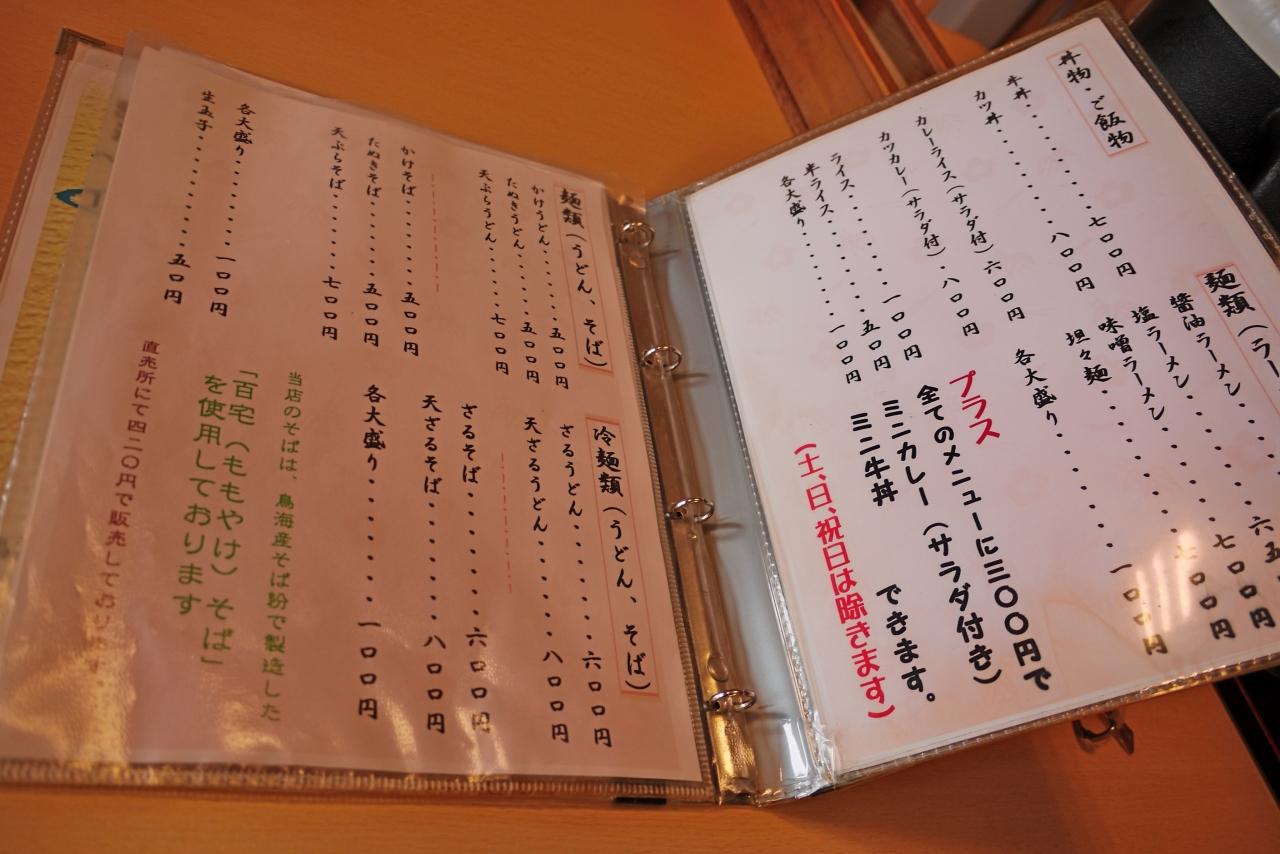 丼物・ご飯物
牛丼・・・・・・・・・七〇〇円
カツ丼・・・・・・・・・八〇〇円
カレーライス（サラダ付）六〇〇円
カツカレー（サラダ付）・八〇〇円
ライス・・・・・・・・一〇〇円
半ライス・・・・・・・・五〇円
各大盛り・・・・・・・・一〇〇円
麺類（ラー
醤油ラーメン・・・・・六五
塩ラーメン・・・・・・七〇〇円
味噌ラーメン・・・・・七〇〇円
坦々麺・・・・・・・・七〇〇円
各大盛り・・・・・・・一〇〇円
プラス
全てのメニューに三〇〇円で
ミニカレー（サラダ付き）
ミニ牛丼　できます。
（土、日、祝日は除きます）
麺類（うどん、そば）
かけうどん・・・・・・五〇〇円
たぬきうどん・・・・・五〇〇円
天ぷらうどん・・・・・七〇〇円
かけそば・・・・・・・五〇〇円
たぬきそば・・・・・・五〇〇円
天ぷらそば・・・・・・七〇〇円
各大盛り・・・・・・・一〇〇円
生玉子・・・・・・・・五〇円
冷麺類（うどん、そば）
ざるうどん・・・・・・六〇〇円
天ざるうどん・・・・・八〇〇円
ざるそば・・・・・・・六〇〇円
天ざるそば・・・・・・八〇〇円
各大盛り・・・・・・・一〇〇円
当店のそばは、鳥海産そば粉で製造した
「百宅（ももやけ）そば」
を使用しております
直売所にて四二〇円で販売しております。